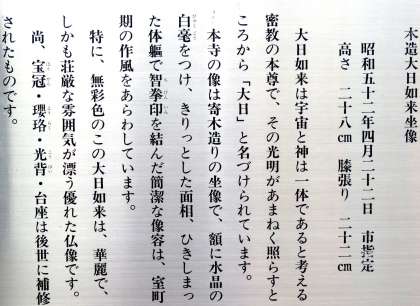 木造大日如来坐像
昭和五十二年四月二十二日　市指定
高さ　二十八cm　膝張り　二十二cm
大日如来は宇宙と神は一体であると考える
密教の本尊で、その光明があまねく照らすと
ころから「大日」と名づけられています。
本寺の像は寄木造りの坐像で、額に水晶の
白毫をつけ、きりっとした面相、ひきしまっ
た体軀で智拳印を結んだ簡潔な像容は、室町
期の作風をあらわしています。
特に、無彩色のこの大日如来は、華麗で、
しかも荘厳な雰囲気が漂う優れた仏像です。
尚、宝冠・瓔珞・光背・台座は後世に補修
されたものです。